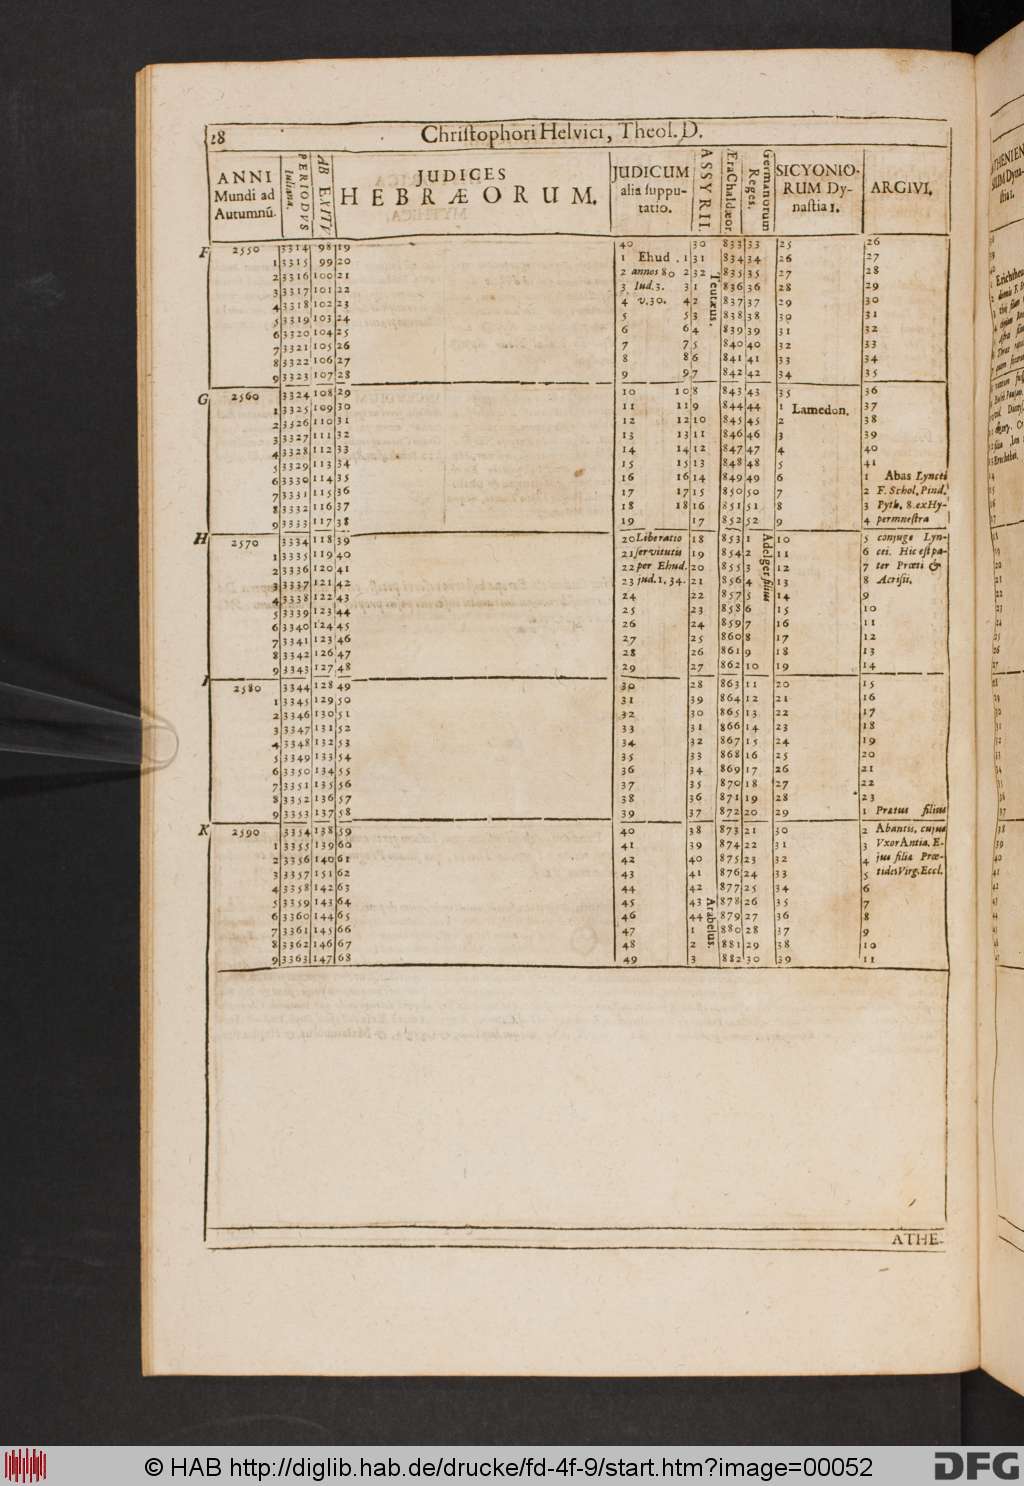 28 Christophori Helvici, Theol. D.
ANNI Mundi ad Autumnũ. PERIODVS Iuliana. AB EXITV JUDICES HEBRÆORUM. JUDICUM alia supputatio. ASSYRII. Æra Chaldæor Germanorum Reges. SICYONIORUM Dynastia 1. ARGIVI.
F 2550 3314 98 19 40 30 833 33 25 26
1 3315 99 20 1 Ehud. 1 31 834 34 26 27
2 3316 100 21 2 annos 80 2 32 Teutæus. 835 35 27 28
3 3317 101 22 3 Iud. 3. 3 1 836 36 28 29
4 3318 102 23 4 v. 30. 4 2 837 37 29 30
5 3319 103 24 5 5 3 838 38 30 31
6 3320 104 25 6 6 4 839 39 31 32
7 3321 105 26 7 7 5 840 40 32 33
8 3322 106 27 8 8 6 841 41 33 34
9 3323 107 28 9 9 7 842 42 34 35
G 2560 3324 108 29 10 10 8 843 43 35 36
1 3325 109 30 11 11 9 844 44 1 Lamedon. 37
2 3326 110 31 12 12 10 845 45 2 38
3 3327 111 32 13 13 11 846 46 3 39
4 3328 112 33 14 14 12 847 47 4 40
5 3329 113 34 15 15 13 848 48 5 41
6 3330 114 35 16 16 14 849 49 6 1 Abas Lyncei
7 3331 115 36 17 17 15 850 50 7 2 F. Schol. Pind.
8 3332 116 37 18 18 16 851 51 8 3 Pyth. 8. ex Hy-
9 3333 117 38 19 17 852 52 9 4 permnestra
H 2570 3334 118 39 20 Liberatio 18 853 1 Adelger filius 10 5 conjuge Lyn-
1 3335 119 40 21 servitutis 19 854 2 11 6 cei. Hic est pa-
2 3336 120 41 22 per Ehud. 20 855 3 12 7 ter Præti &
3 3337 121 42 23 jud. 1. 34. 21 856 4 13 8 Acrisii.
4 3338 122 43 24 22 857 5 14 9
5 3339 123 44 25 23 858 6 15 10
6 3340 124 45 26 24 859 7 16 11
7 3341 123 46 27 25 860 8 17 12
8 3342 126 47 28 26 861 9 18 13
9 3343 127 48 29 27 862 10 19 14
I 2580 3344 128 49 30 28 863 11 20 15
1 3345 129 50 31 39 864 12 21 16
2 3346 130 51 32 30 865 13 22 17
3 3347 131 52 33 31 866 14 23 18
4 3348 132 53 34 32 867 15 24 19
5 3349 133 54 35 33 868 16 25 20
6 3350 134 55 36 34 869 17 26 21
7 3351 135 56 37 35 870 18 27 22
8 3352 136 57 38 36 871 19 28 23
9 3353 137 58 39 37 872 20 29 1 Prætus filius
K 2590 3354 138 59 40 38 873 21 30 2 Abantis, cujus
1 3355 139 60 41 39 874 22 31 3 Vxor Antia. E-
2 3356 140 61 42 40 875 23 32 4 jus filia Præ-
3 3357 151 62 43 41 876 24 33 5 tides Virg. Eccl.
4 3358 142 63 44 42 877 25 34 6
5 3359 143 64 45 43 Arabelus. 878 26 35 7
6 3360 144 65 46 44 879 27 36 8
7 3361 145 66 47 1 880 28 37 9
8 3362 146 67 48 2 881 29 38 10
9 3363 147 68 49 3 882 30 39 11
ATHE-
© HAB http://diglib.hab.de/drucke/fd-4f-9/start.htm?image=00052
DFG